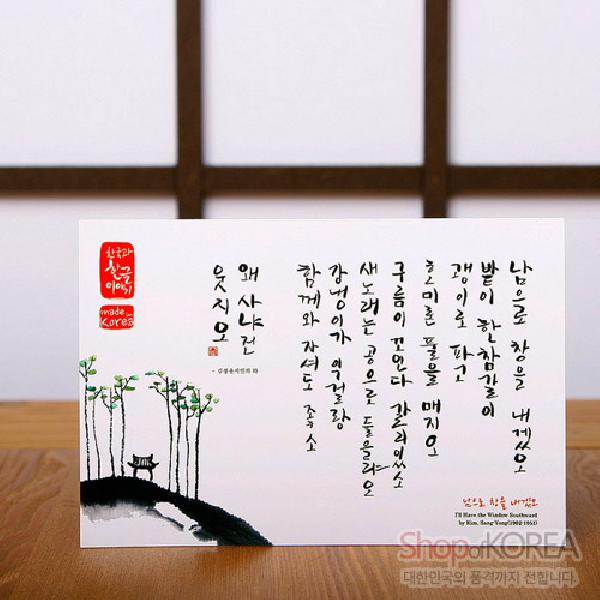 한국과
한글
이야기
made in
Korea
남으로 창을 내겠소
밭이 한참갈이
괭이로 파고
호미론 풀을 매지오
구름이 꼬인다 갈리있소
새노래는 공으로 들을랴오
강냉이가 익걸랑
함께와 자셔도 좋소
왜 사냐건
웃지오
- 김상용시인의
남으로 창을 내겠소
I'll Have the Window Southward
by Kim, Sang-Yong(1902-1951)
Shop of KOREA
대한민국의 품격까지 전합니다.